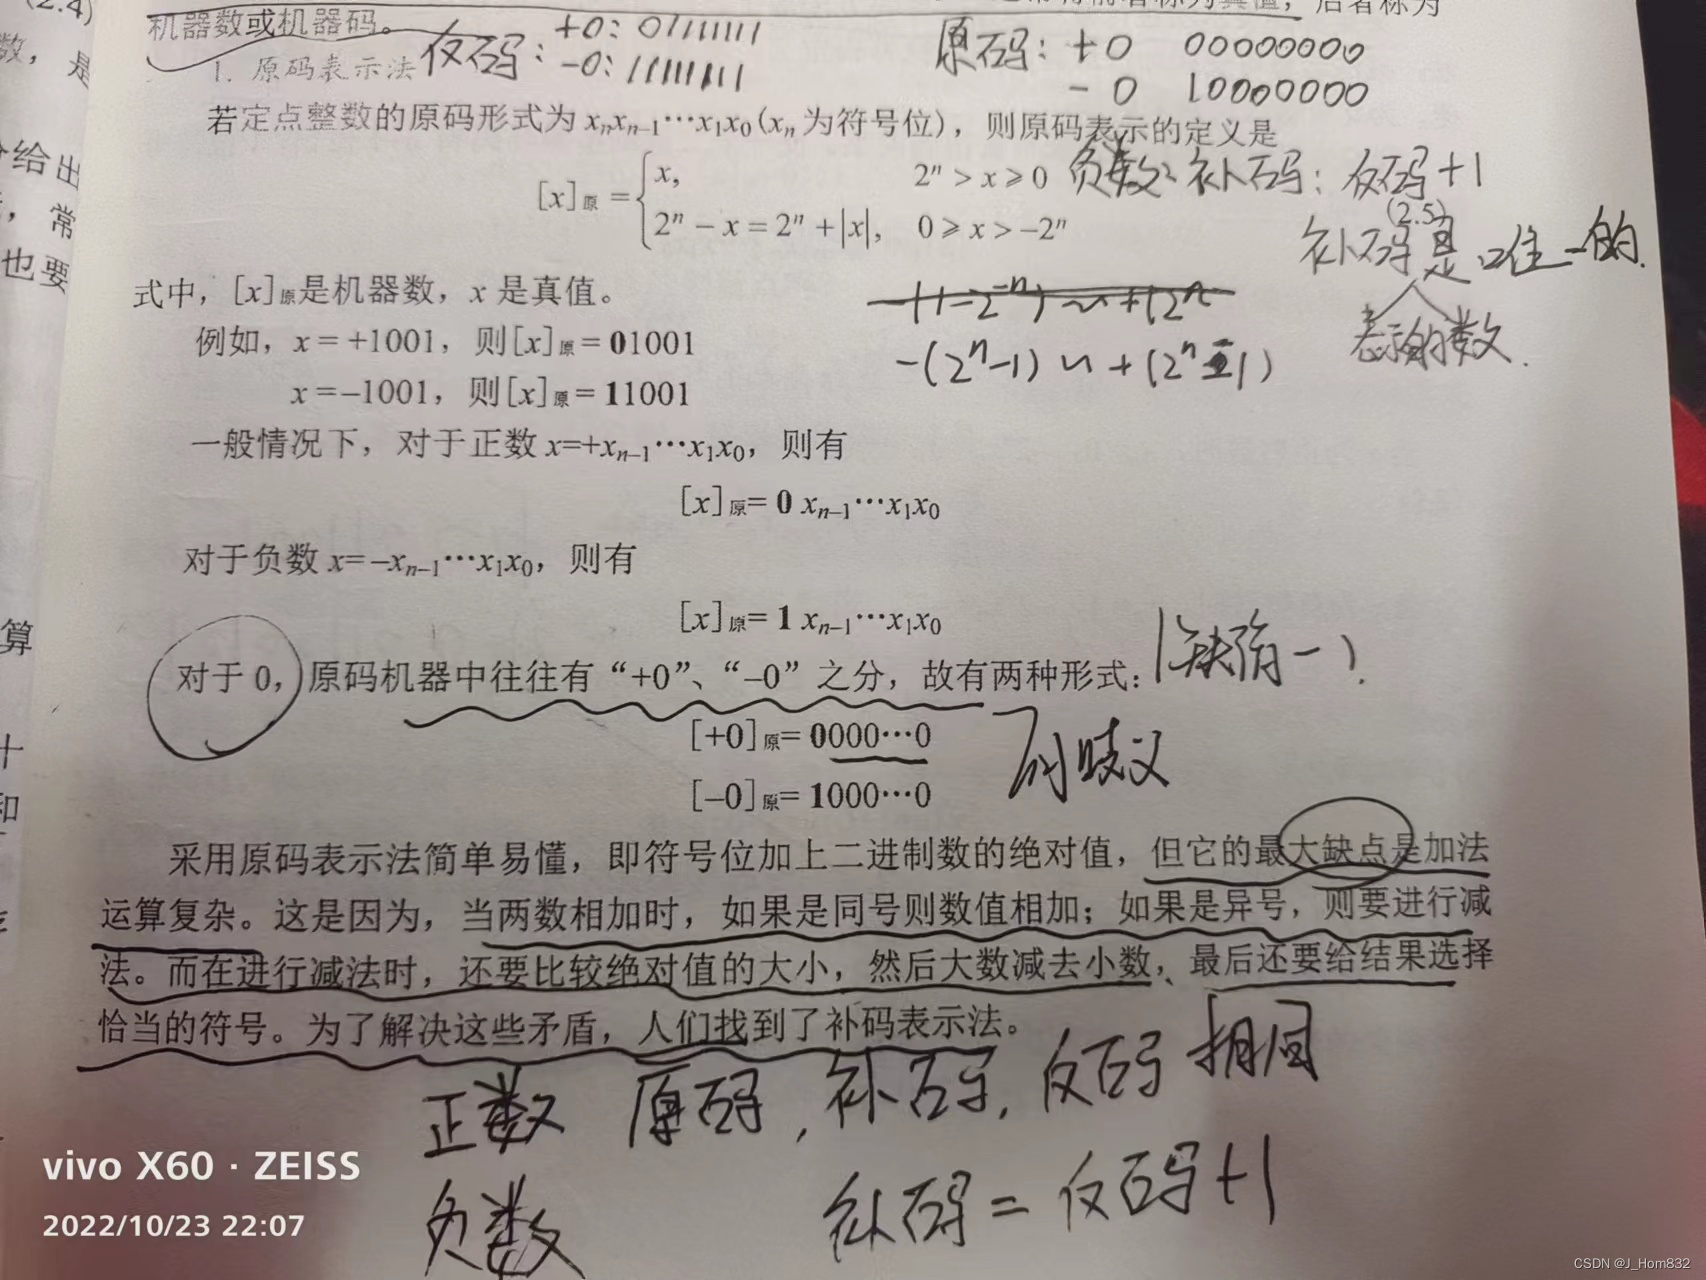 (2.4)
后者称为
机器数或机器码。
反码：+0：01111111
-0：11111111
原码：+0 00000000
-0 10000000
1. 原码表示法
若定点整数的原码形式为 xₙxₙ₋₁⋯x₁x₀(xₙ 为符号位)，则原码表示的定义是
[x]原 = { x, 2ⁿ > x ⩾ 0
2ⁿ − x = 2ⁿ + |x|, 0 ⩾ x > −2ⁿ
(2.5)
负数：补码：反码+1
补码是唯一的.
表示的数.
式中，[x]原是机器数，x 是真值。
-(2ⁿ-1) ~ +(2ⁿ-1)
例如，x = +1001，则[x]原 = 01001
x = −1001，则[x]原 = 11001
一般情况下，对于正数 x=+xₙ₋₁⋯x₁x₀，则有
[x]原= 0 xₙ₋₁⋯x₁x₀
对于负数 x= −xₙ₋₁⋯x₁x₀，则有
[x]原= 1 xₙ₋₁⋯x₁x₀
对于 0，原码机器中往往有“+0”、“−0”之分，故有两种形式：
(缺陷一)
[+0]原= 0000⋯0
有歧义
[−0]原= 1000⋯0
采用原码表示法简单易懂，即符号位加上二进制数的绝对值，但它的最大缺点是加法
运算复杂。这是因为，当两数相加时，如果是同号则数值相加；如果是异号，则要进行减
法。而在进行减法时，还要比较绝对值的大小，然后大数减去小数，最后还要给结果选择
恰当的符号。为了解决这些矛盾，人们找到了补码表示法。
正数 原码，补码，反码 相同
负数 补码 = 反码+1
数，是
给出
，常
也要
算
十
和
vivo X60 · ZEISS
2022/10/23 22:07
CSDN @J_Hom832